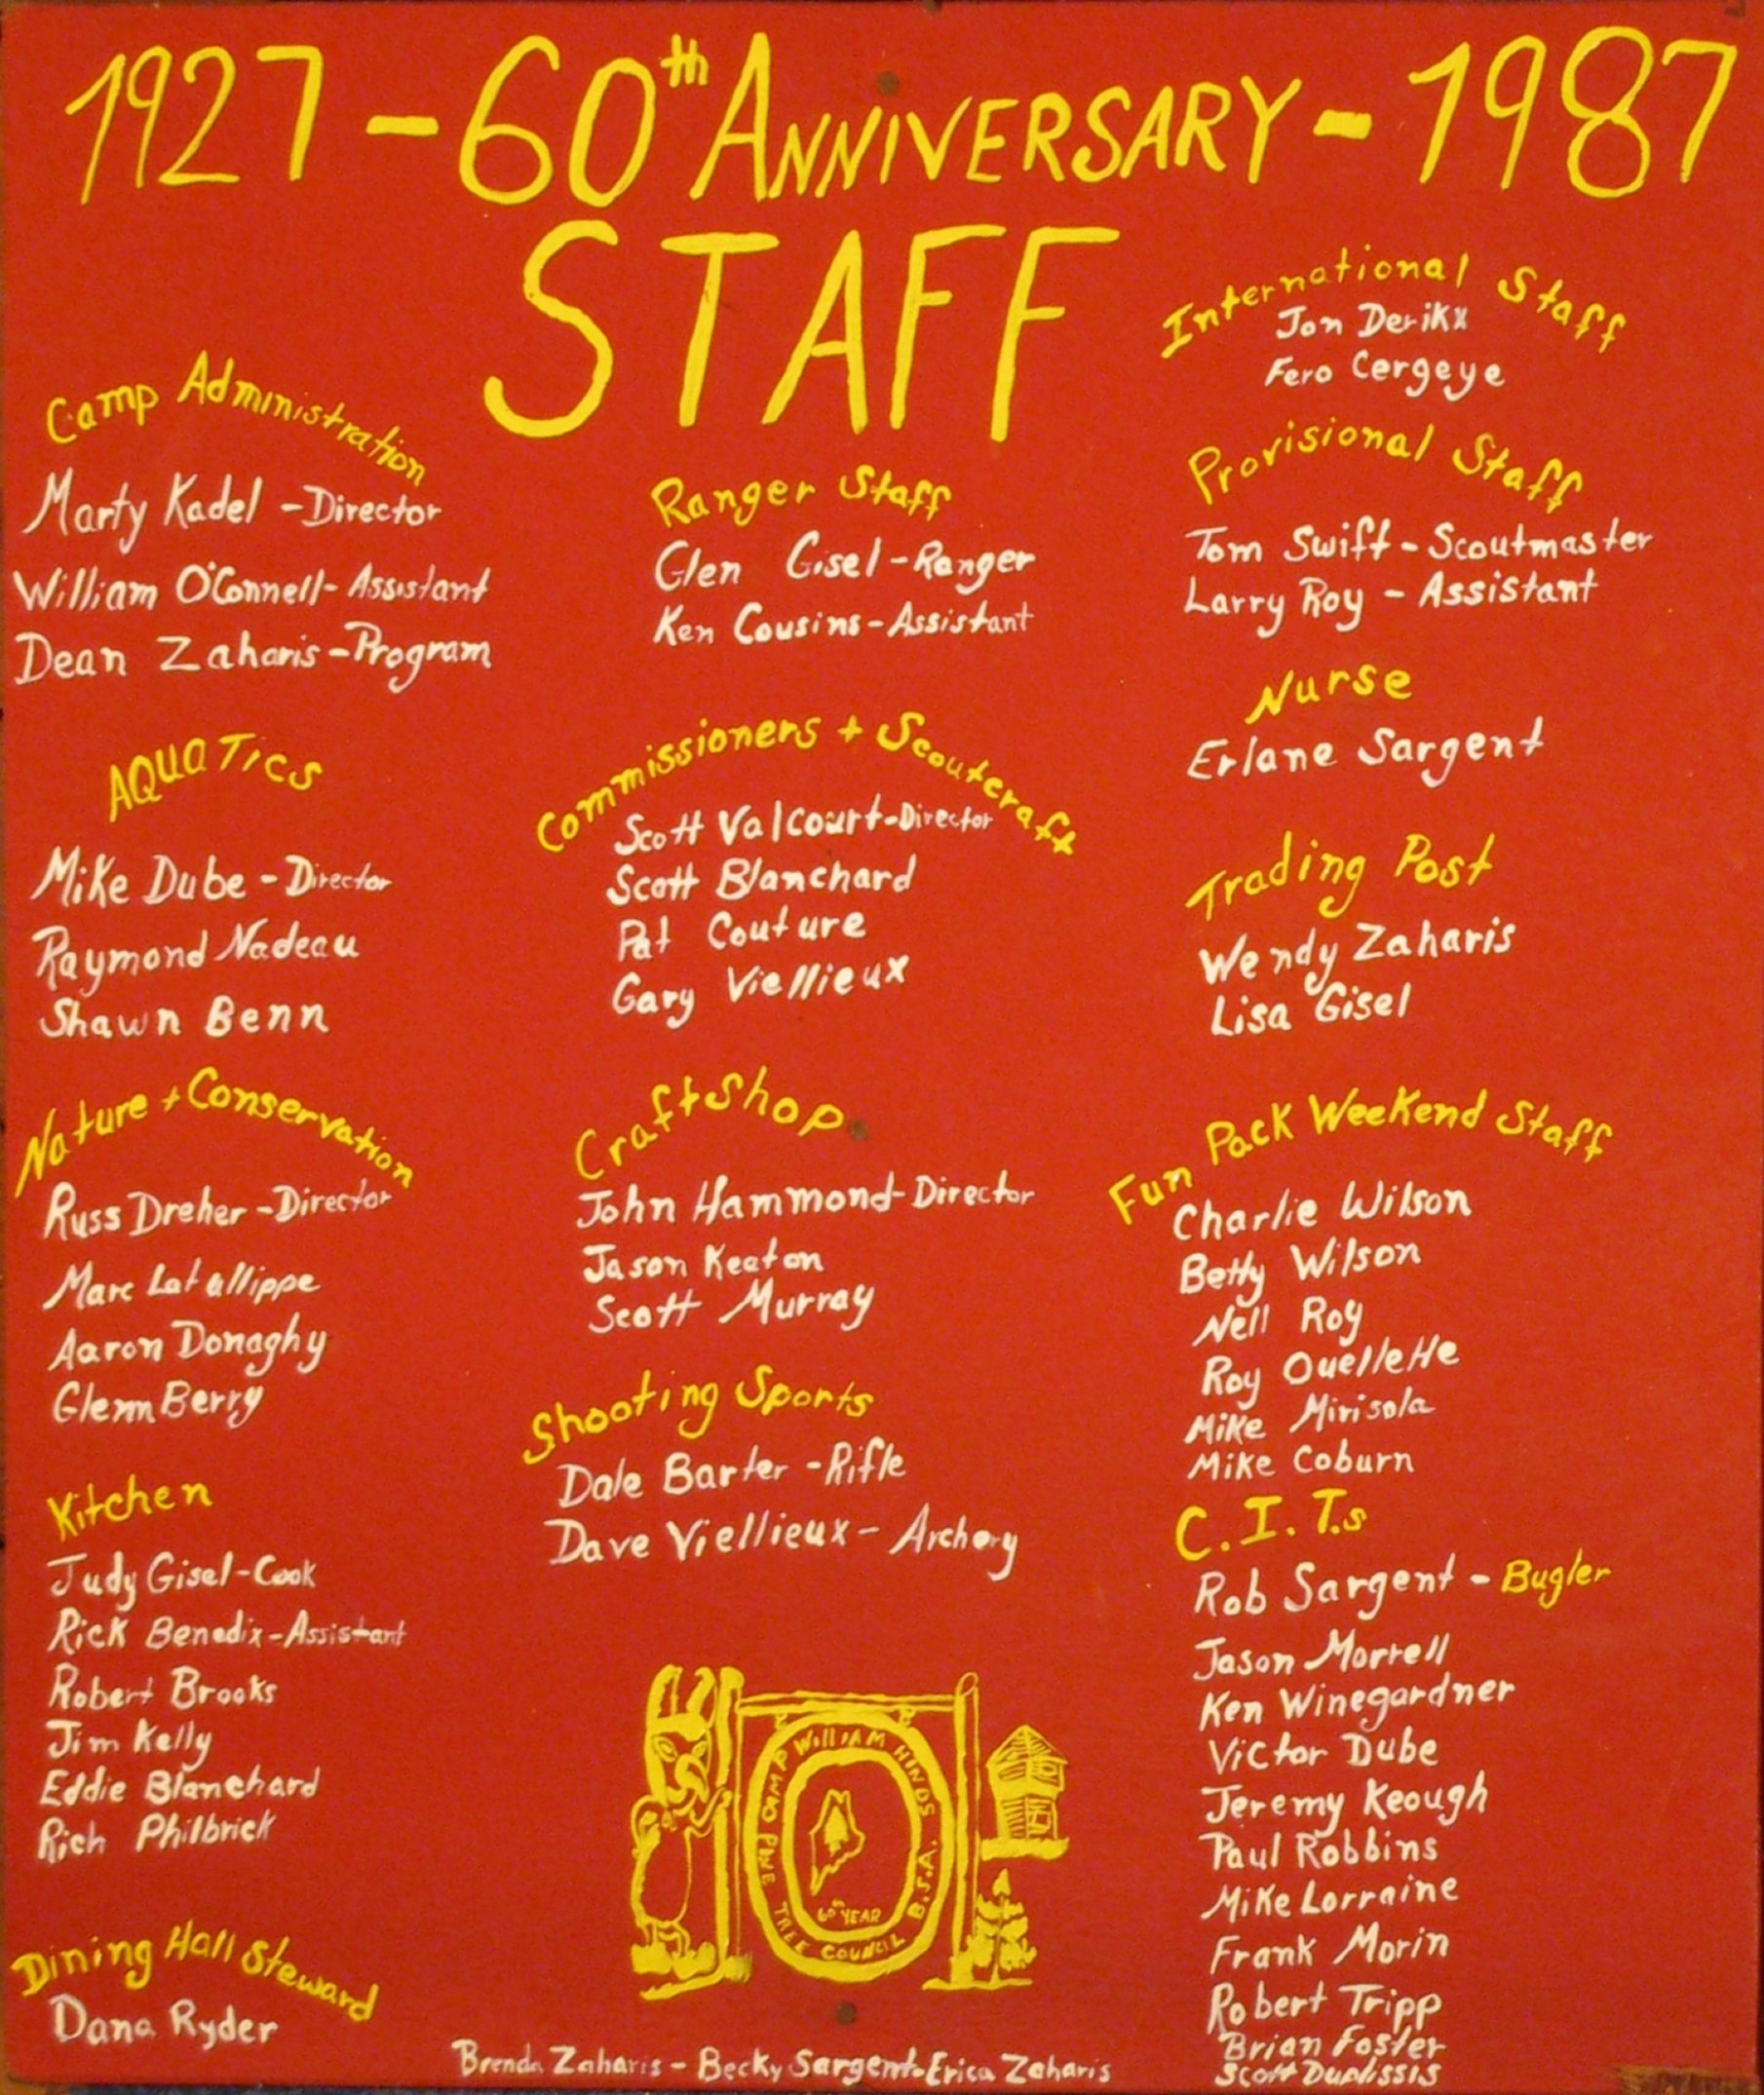 1927 - 60th ANNIVERSARY - 1987
STAFF
Camp Administration
Marty Kadel - Director
William O'Connell - Assistant
Dean Zaharis - Program
AQUATICS
Mike Dube - Director
Raymond Nadeau
Shawn Benn
Nature + Conservation
Russ Dreher - Director
Marc Latallippe
Aaron Donaghy
Glenn Berry
Kitchen
Judy Gisel - Cook
Rick Benedix - Assistant
Robert Brooks
Jim Kelly
Eddie Blanchard
Rich Philbrick
Dining Hall Steward
Dana Ryder
Ranger Staff
Glen Gisel - Ranger
Ken Cousins - Assistant
Commissioners + Scoutcraft
Scott Valcourt - Director
Scott Blanchard
Pat Couture
Gary Viellieux
Craft Shop
John Hammond - Director
Jason Keaton
Scott Murray
Shooting Sports
Dale Barter - Rifle
Dave Viellieux - Archery
CAMP WILLIAM HINDS
B.S.A.
PINE TREE COUNCIL
60th YEAR
Brenda Zaharis - Becky Sargent - Erica Zaharis
International Staff
Jon Derikx
Fero Cergeye
Provisional Staff
Tom Swift - Scoutmaster
Larry Roy - Assistant
Nurse
Erlane Sargent
Trading Post
Wendy Zaharis
Lisa Gisel
Fun Pack Weekend Staff
Charlie Wilson
Betty Wilson
Nell Roy
Roy Ouellette
Mike Mirisola
Mike Coburn
C.I.T.s
Rob Sargent - Bugler
Jason Morrell
Ken Winegardner
Victor Dube
Jeremy Keough
Paul Robbins
Mike Lorraine
Frank Morin
Robert Tripp
Brian Foster
Scott Duplissis